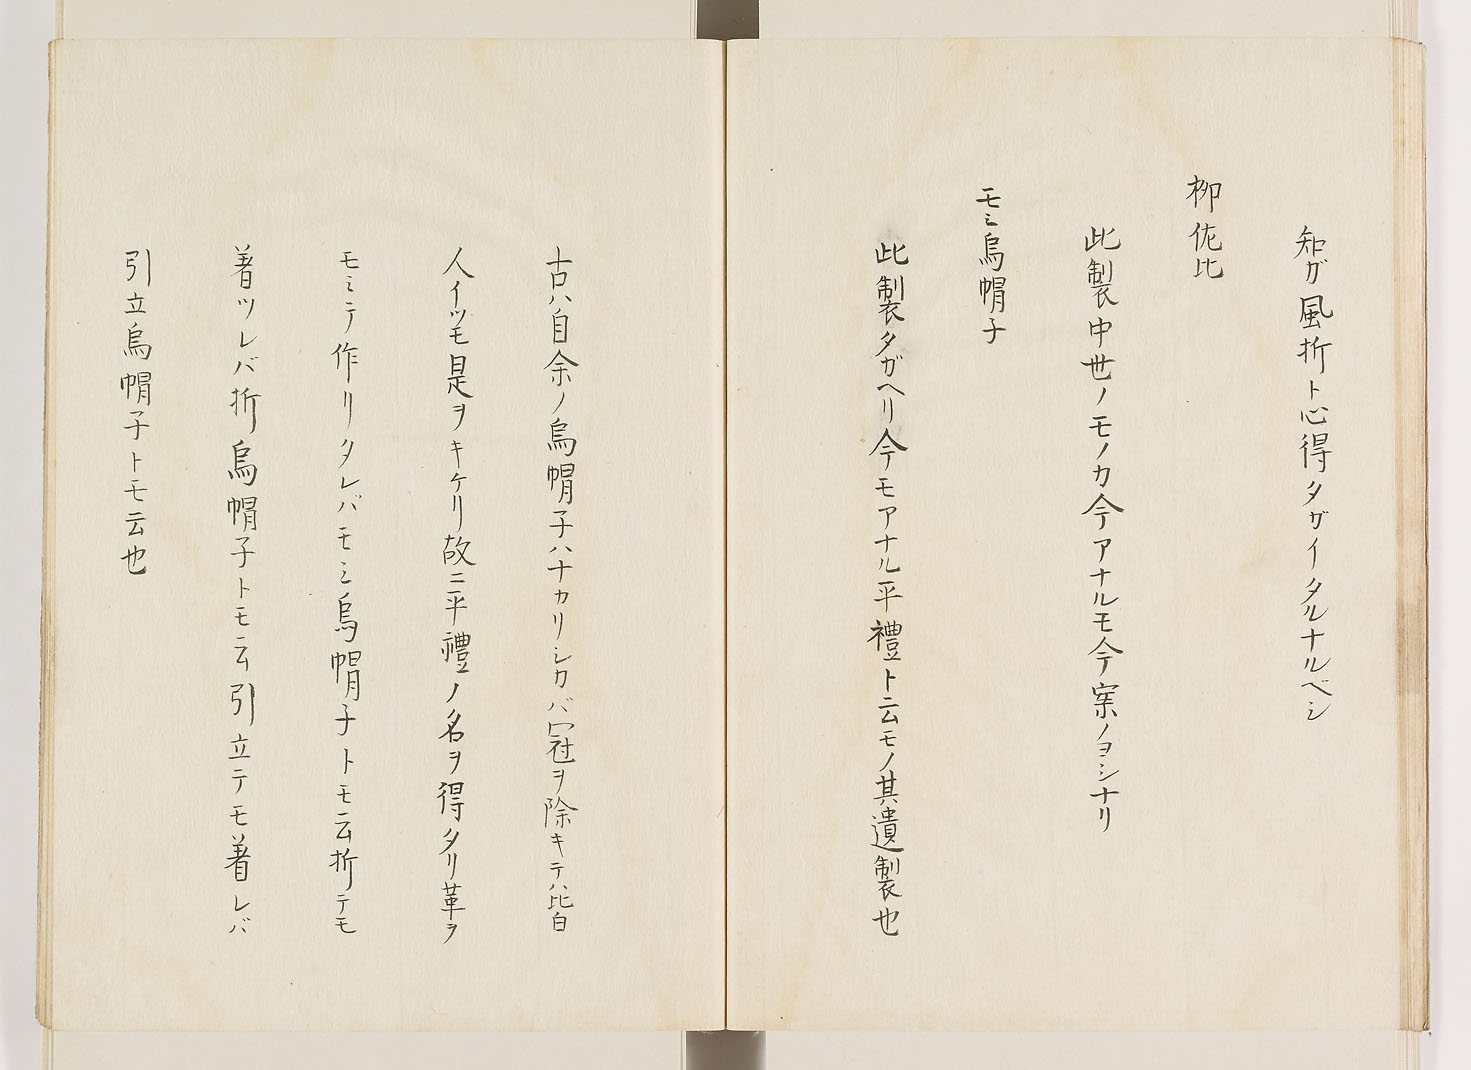 知ガ風折ト心得タガイタルナルベシ
柳佐比
此製中世ノモノカ今アナルモ今案ノヨシナリ
モミ烏帽子
此製タガヘリ今モアナル平禮ト云モノ其遺製也
古ハ自余ノ烏帽子ハナカリシカバ冠ヲ除キテハ皆
人イツモ是ヲキケリ故ニ平禮ノ名ヲ得タリ革ヲ
モミテ作リタレバモミ烏帽子トモ云折テモ
着ツレバ折烏帽子トモ云引立テモ着レバ
引立烏帽子トモ云也